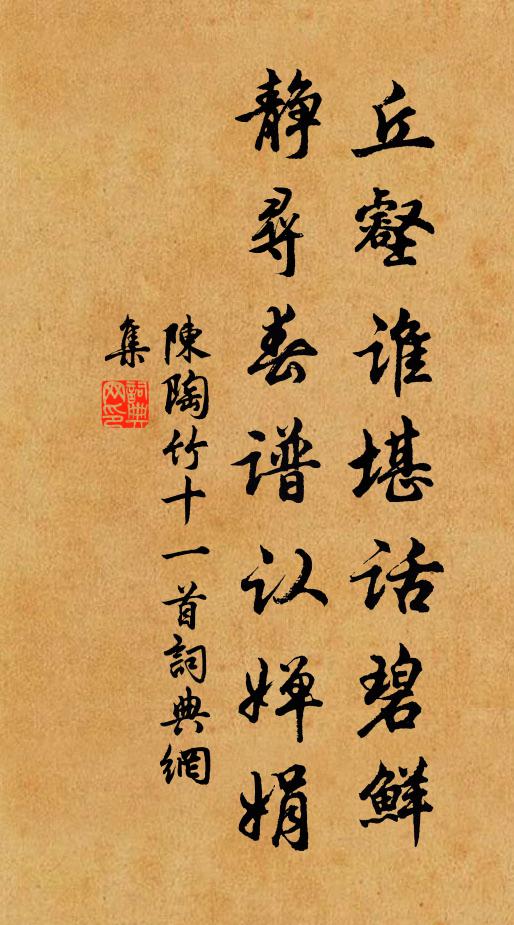 丘壑谁堪话碧鮮
静尋春谱认婵娟
陳陶竹十一首詞典網
集
詞典
网印